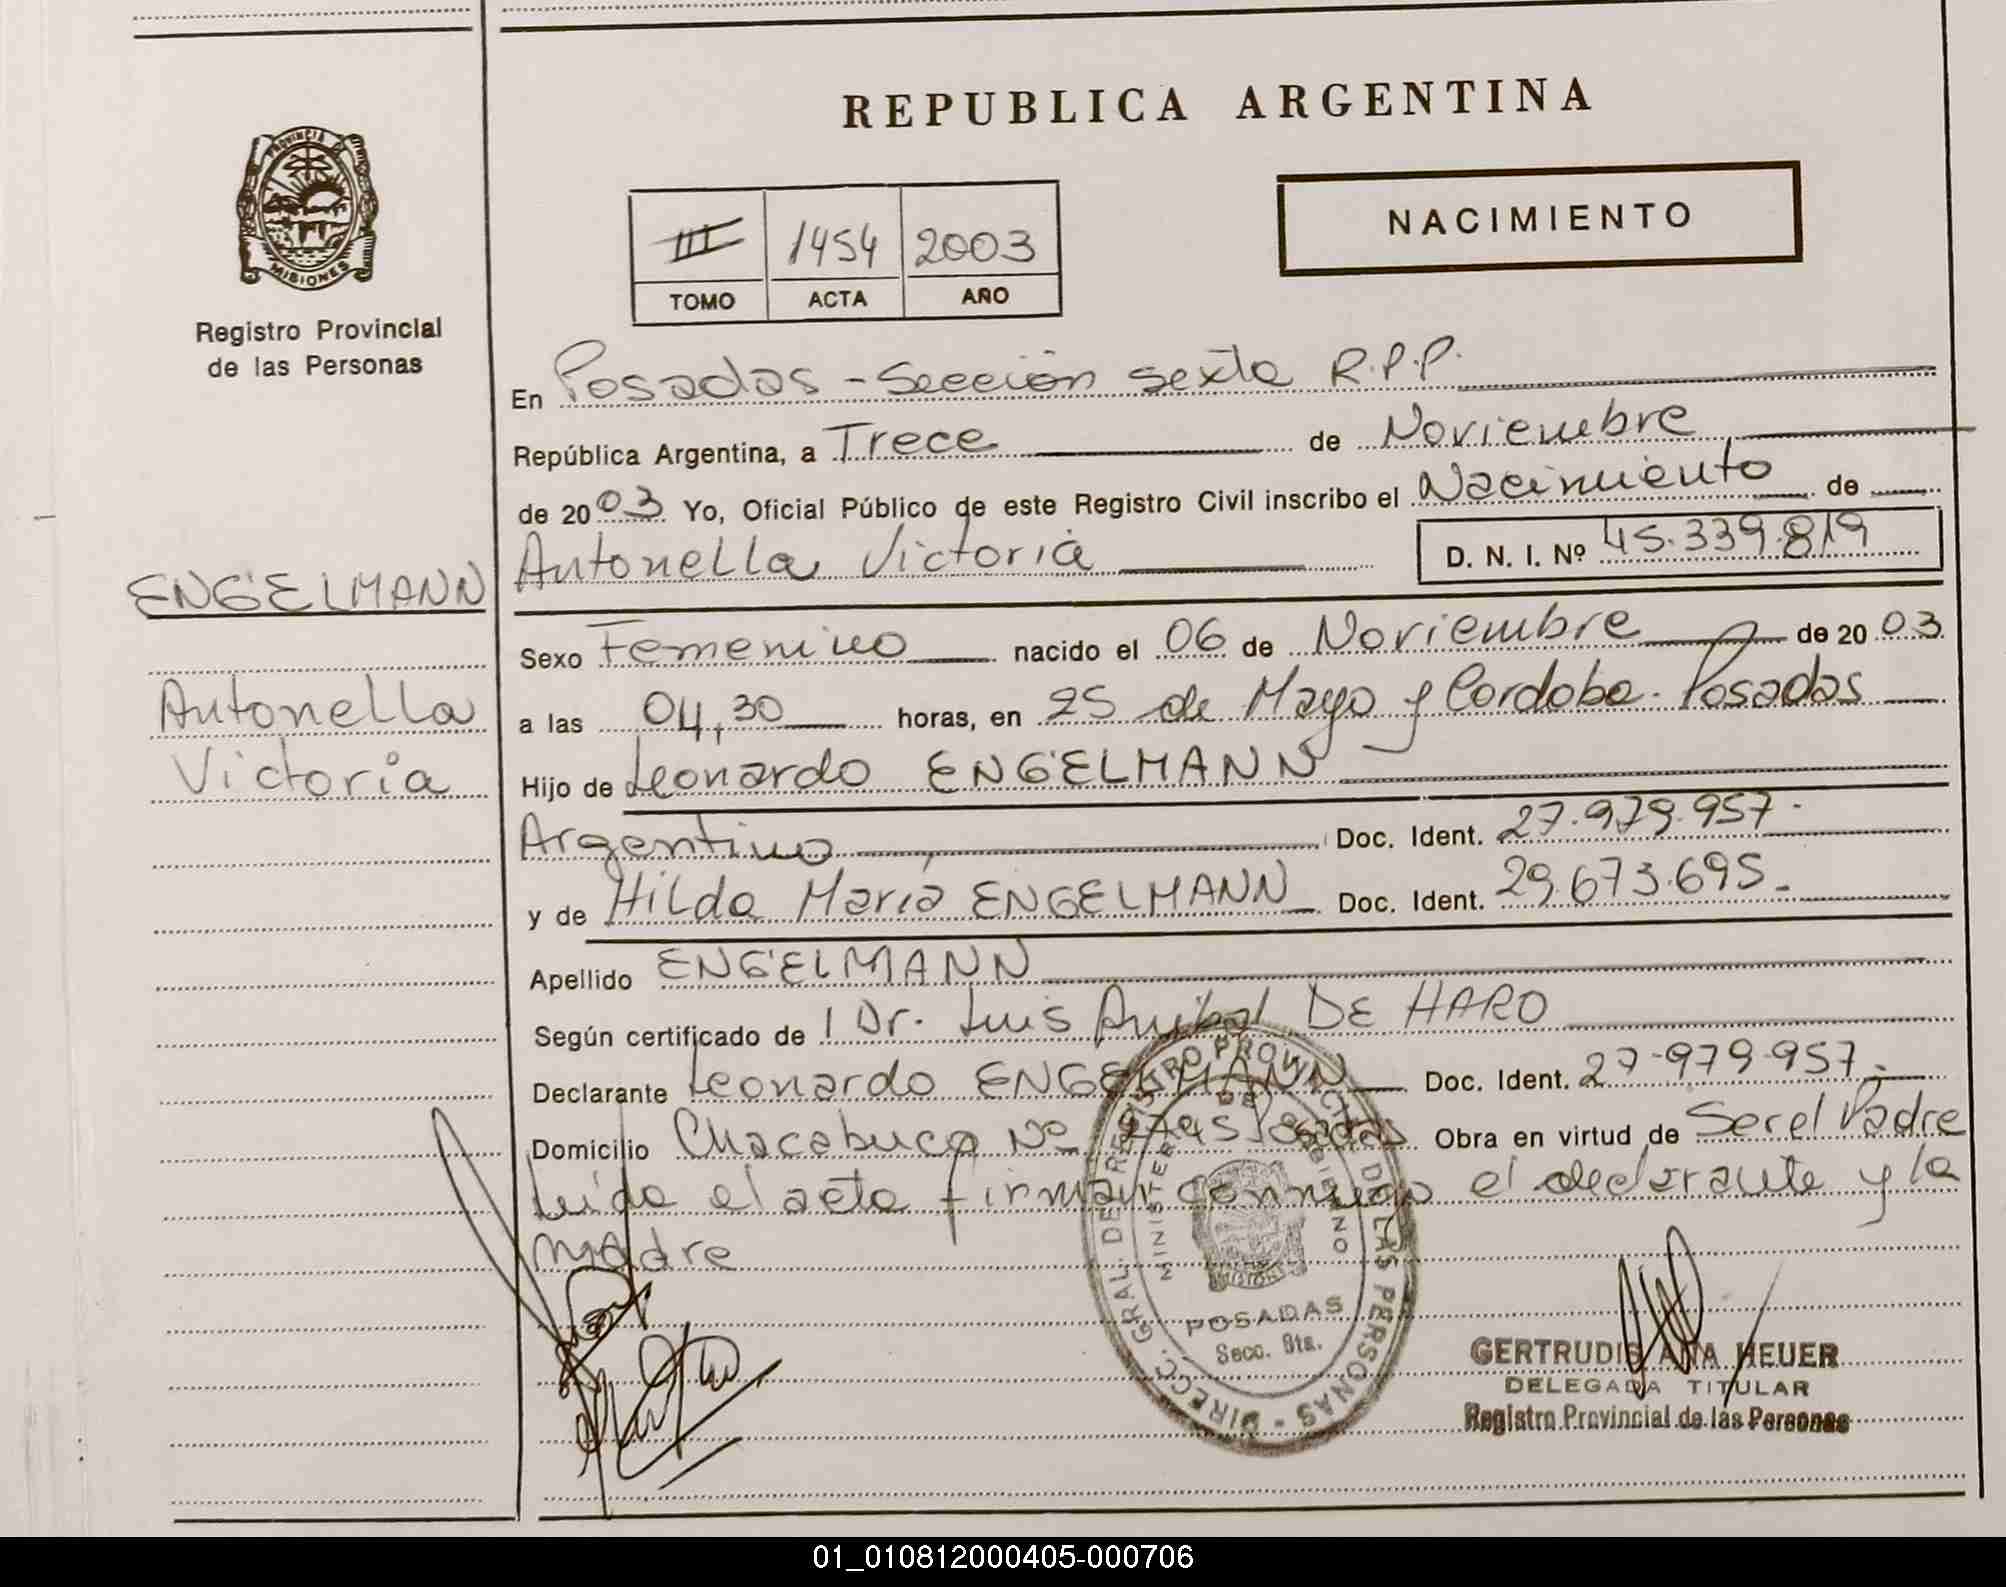 REPUBLICA ARGENTINA
PROVINCIA DE
MISIONES
Registro Provincial
de las Personas
NACIMIENTO
III 1454 2003
TOMO ACTA AÑO
En Posadas - Sección sexta R.P.P.
República Argentina, a Trece de Noviembre
de 2003 Yo, Oficial Público de este Registro Civil inscribo el Nacimiento de
Antonella Victoria D. N. I. Nº 45.339.819
ENGELMANN
Antonella
Victoria
Sexo Femenino nacido el 06 de Noviembre de 2003
a las 04,30 horas, en 25 de Mayo y Cordoba. Posadas
Hijo de Leonardo ENGELMANN
Argentino Doc. Ident. 27.979.957.
y de Hilda María ENGELMANN Doc. Ident. 29.673.695.
Apellido ENGELMANN
Según certificado de Dr. Luis Anibal DE HARO
Declarante Leonardo ENGELMANN Doc. Ident. 27.979.957.
Domicilio Chacabuco Nº Posadas Obra en virtud de Ser el Padre
Leída el acta firman conmigo el declarante y la
madre
DIRECC. GRAL. DE REGISTRO PROVINCIAL DE LAS PERSONAS
MINISTERIO DE GOBIERNO
MISIONES
POSADAS
Secc. 6ta.
GERTRUDIS ANA HEUER
DELEGADA TITULAR
Registro Provincial de las Personas
01_010812000405-000706